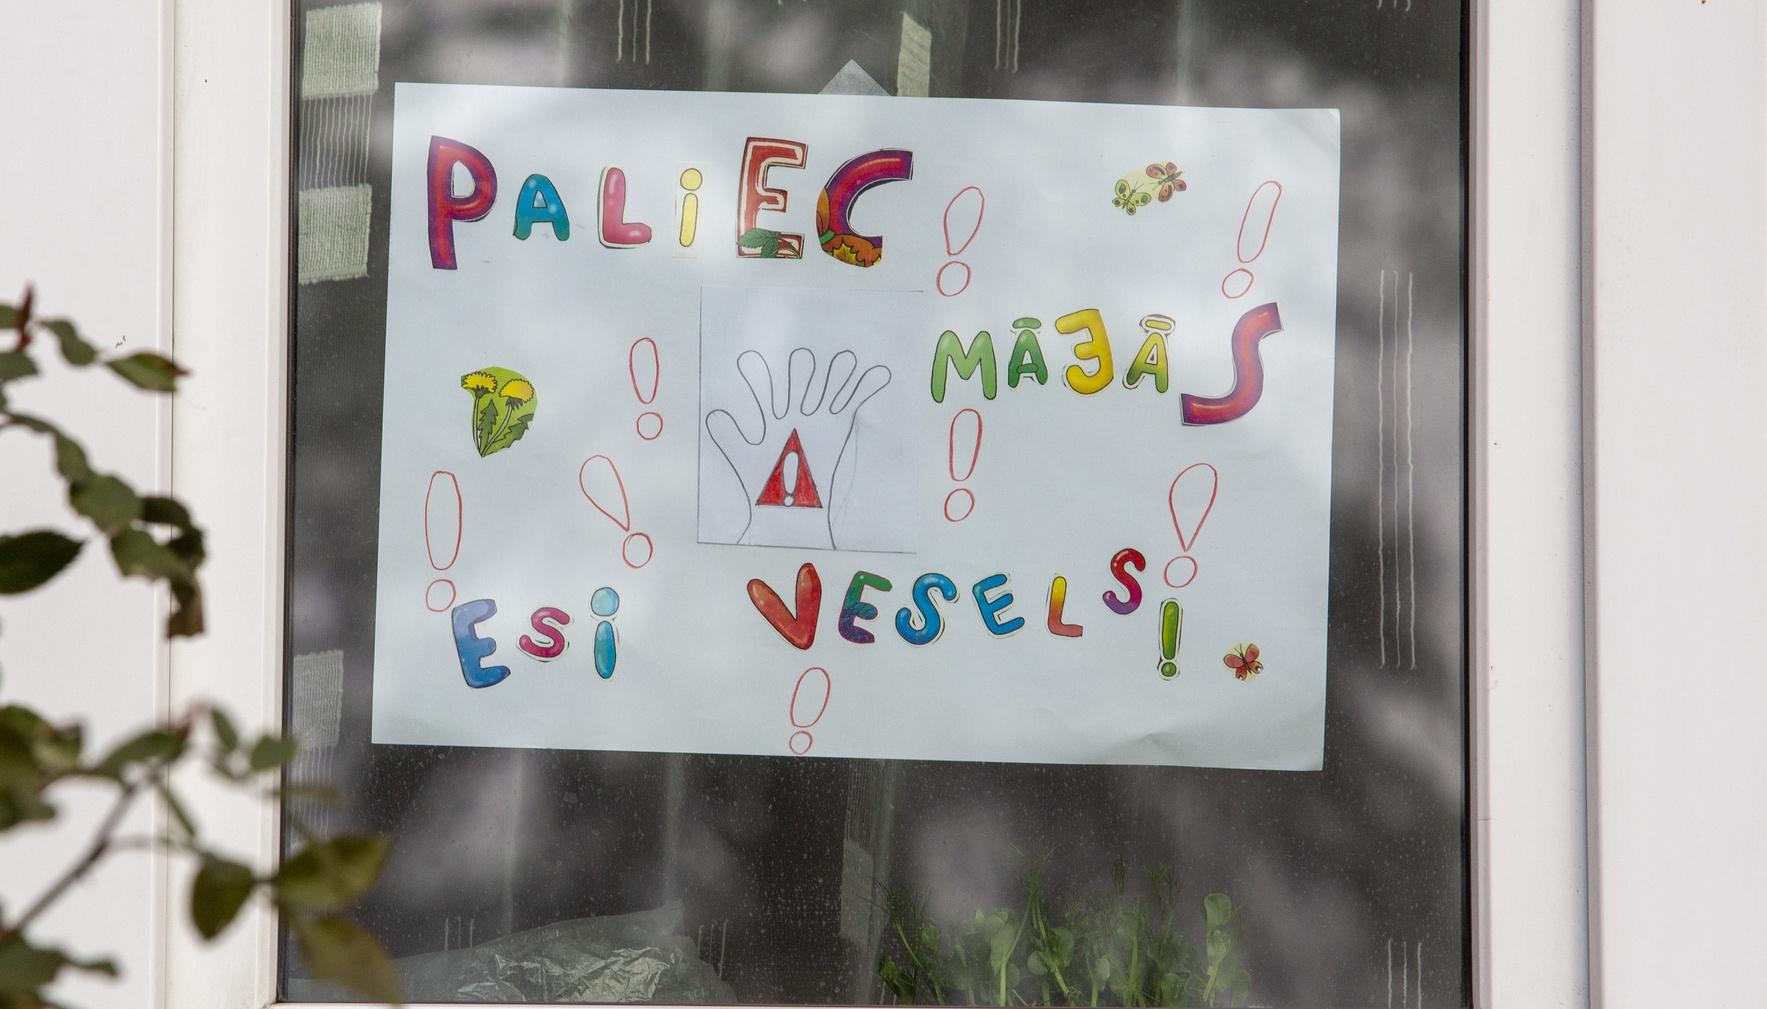 PALiEC !
MĀJĀS
ESi VESELS!